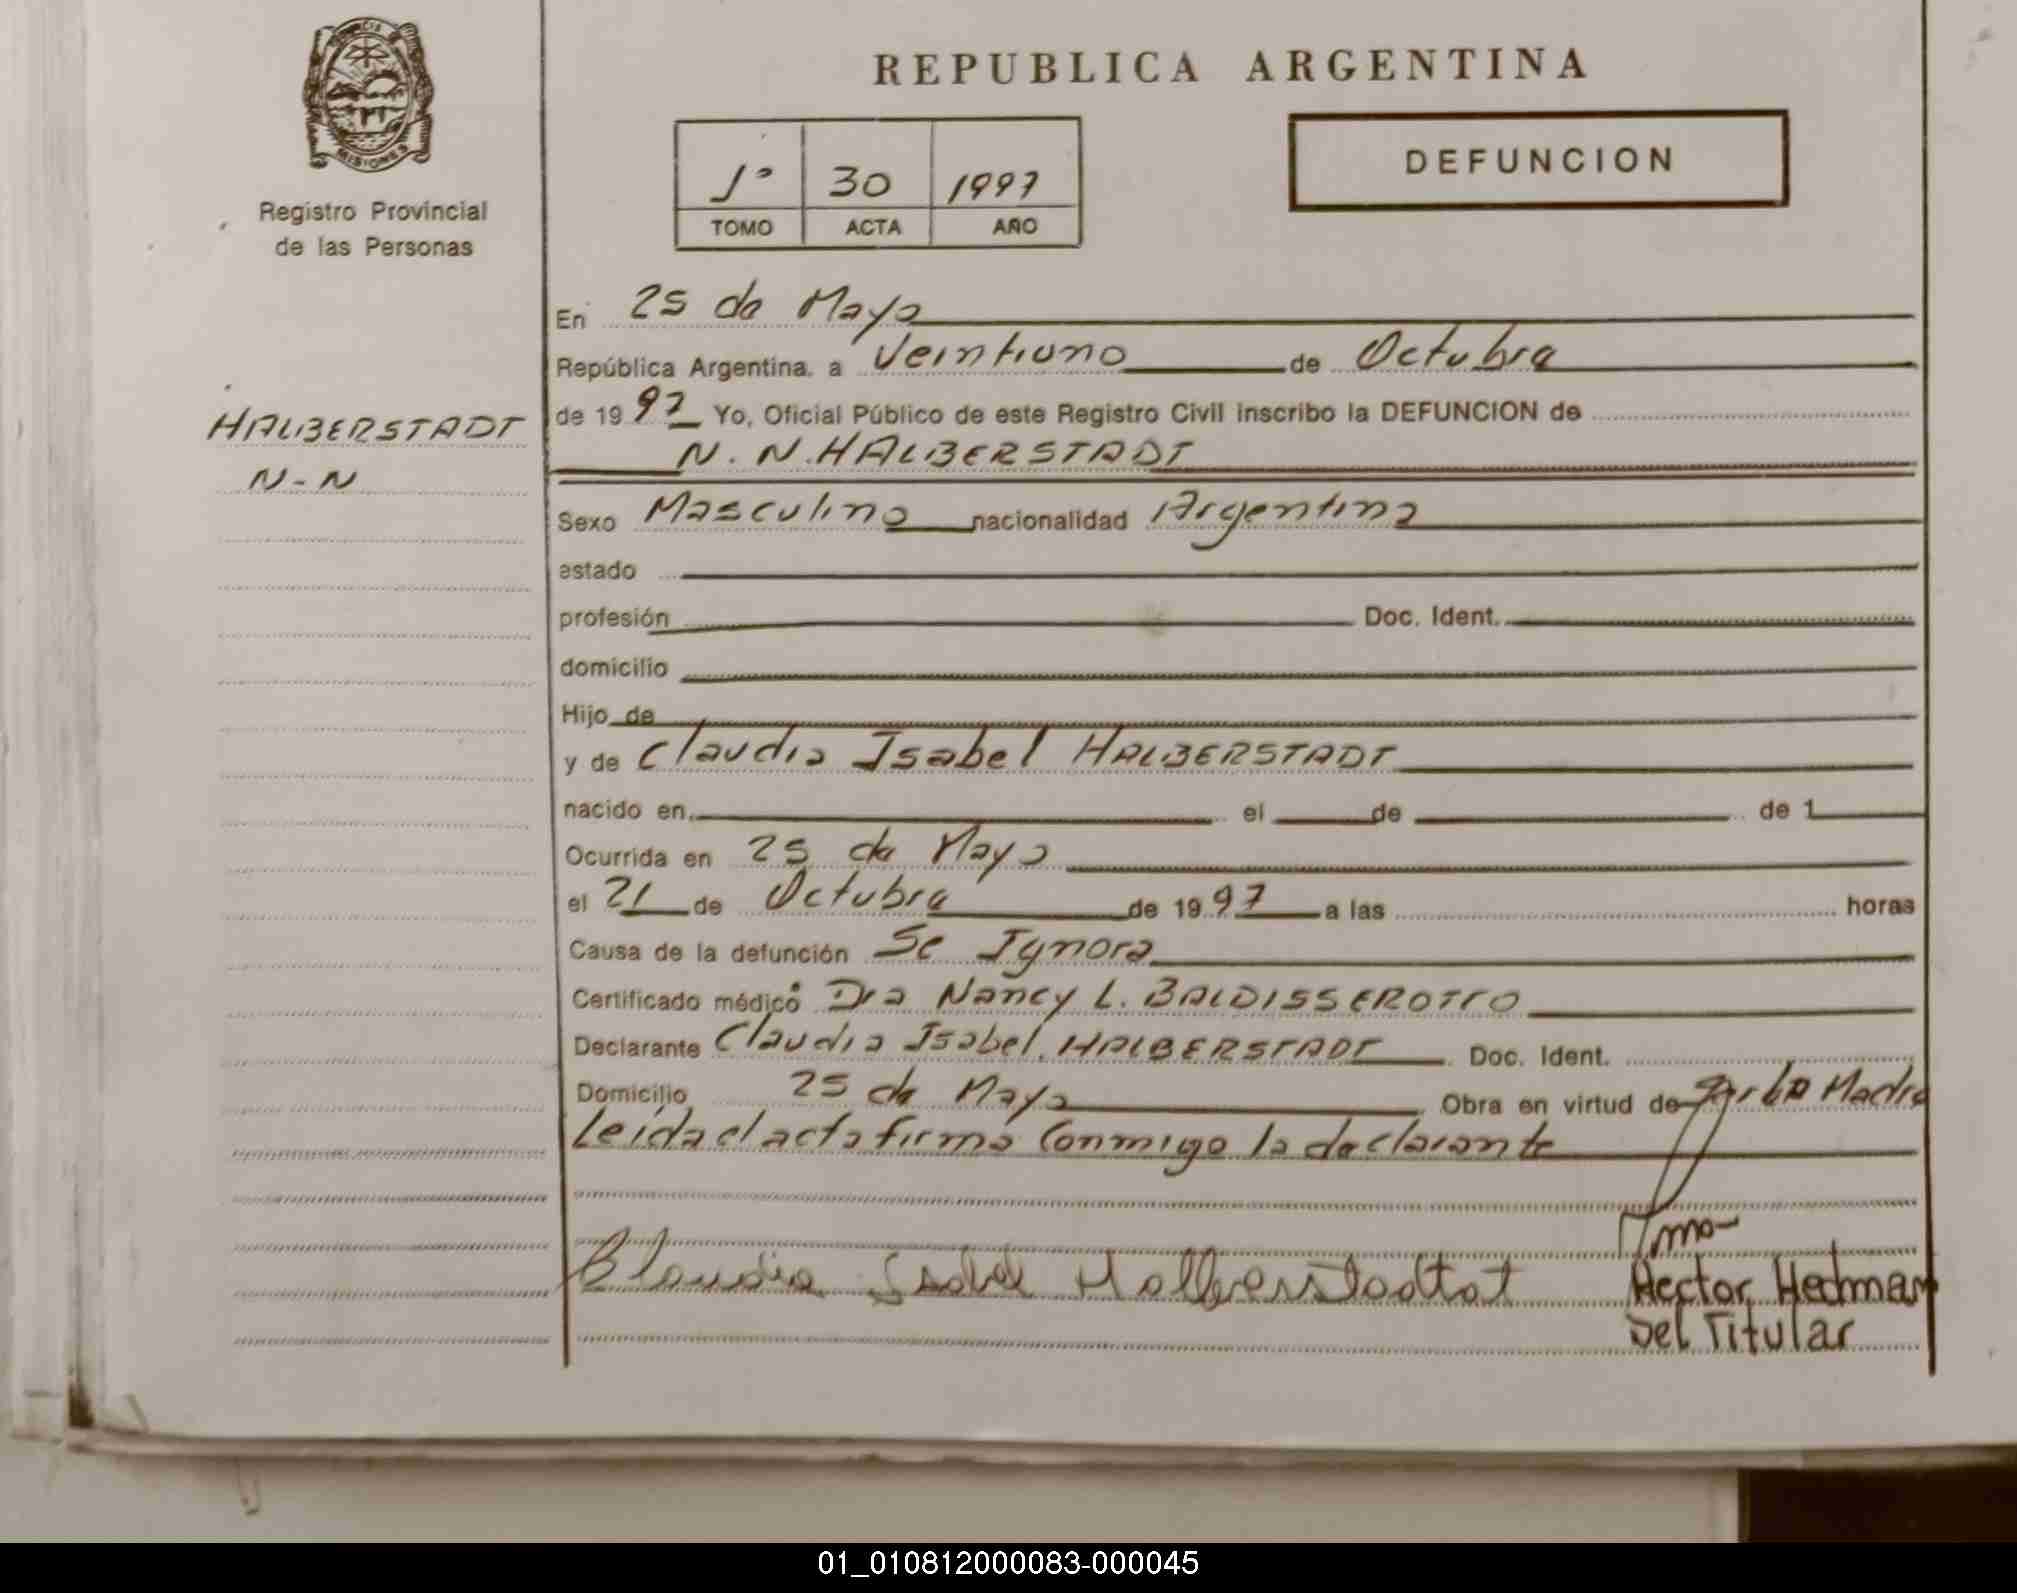 PROVINCIA DE
MISIONES
Registro Provincial
de las Personas
HALBERSTADT
N-N
REPUBLICA ARGENTINA
1º 30 1997
TOMO ACTA AÑO
DEFUNCION
En 25 de Mayo
República Argentina, a Veintiuno de Octubre
de 19 97 Yo, Oficial Público de este Registro Civil inscribo la DEFUNCION de
N. N. HALBERSTADT
Sexo Masculino nacionalidad Argentina
estado
profesión Doc. Ident.
domicilio
Hijo de
y de Claudia Isabel HALBERSTADT
nacido en el de de 1
Ocurrida en 25 de Mayo
el 21 de Octubre de 19 97 a las horas
Causa de la defunción Se Ignora
Certificado médico Dra Nancy L. BALDISSEROTTO
Declarante Claudia Isabel HALBERSTADT Doc. Ident.
Domicilio 25 de Mayo Obra en virtud de ser la Madre
Leida el acta firma Conmigo la declarante
Claudia Isabel Halberstadtat
Hector Hedman
Del Titular
01_010812000083-000045